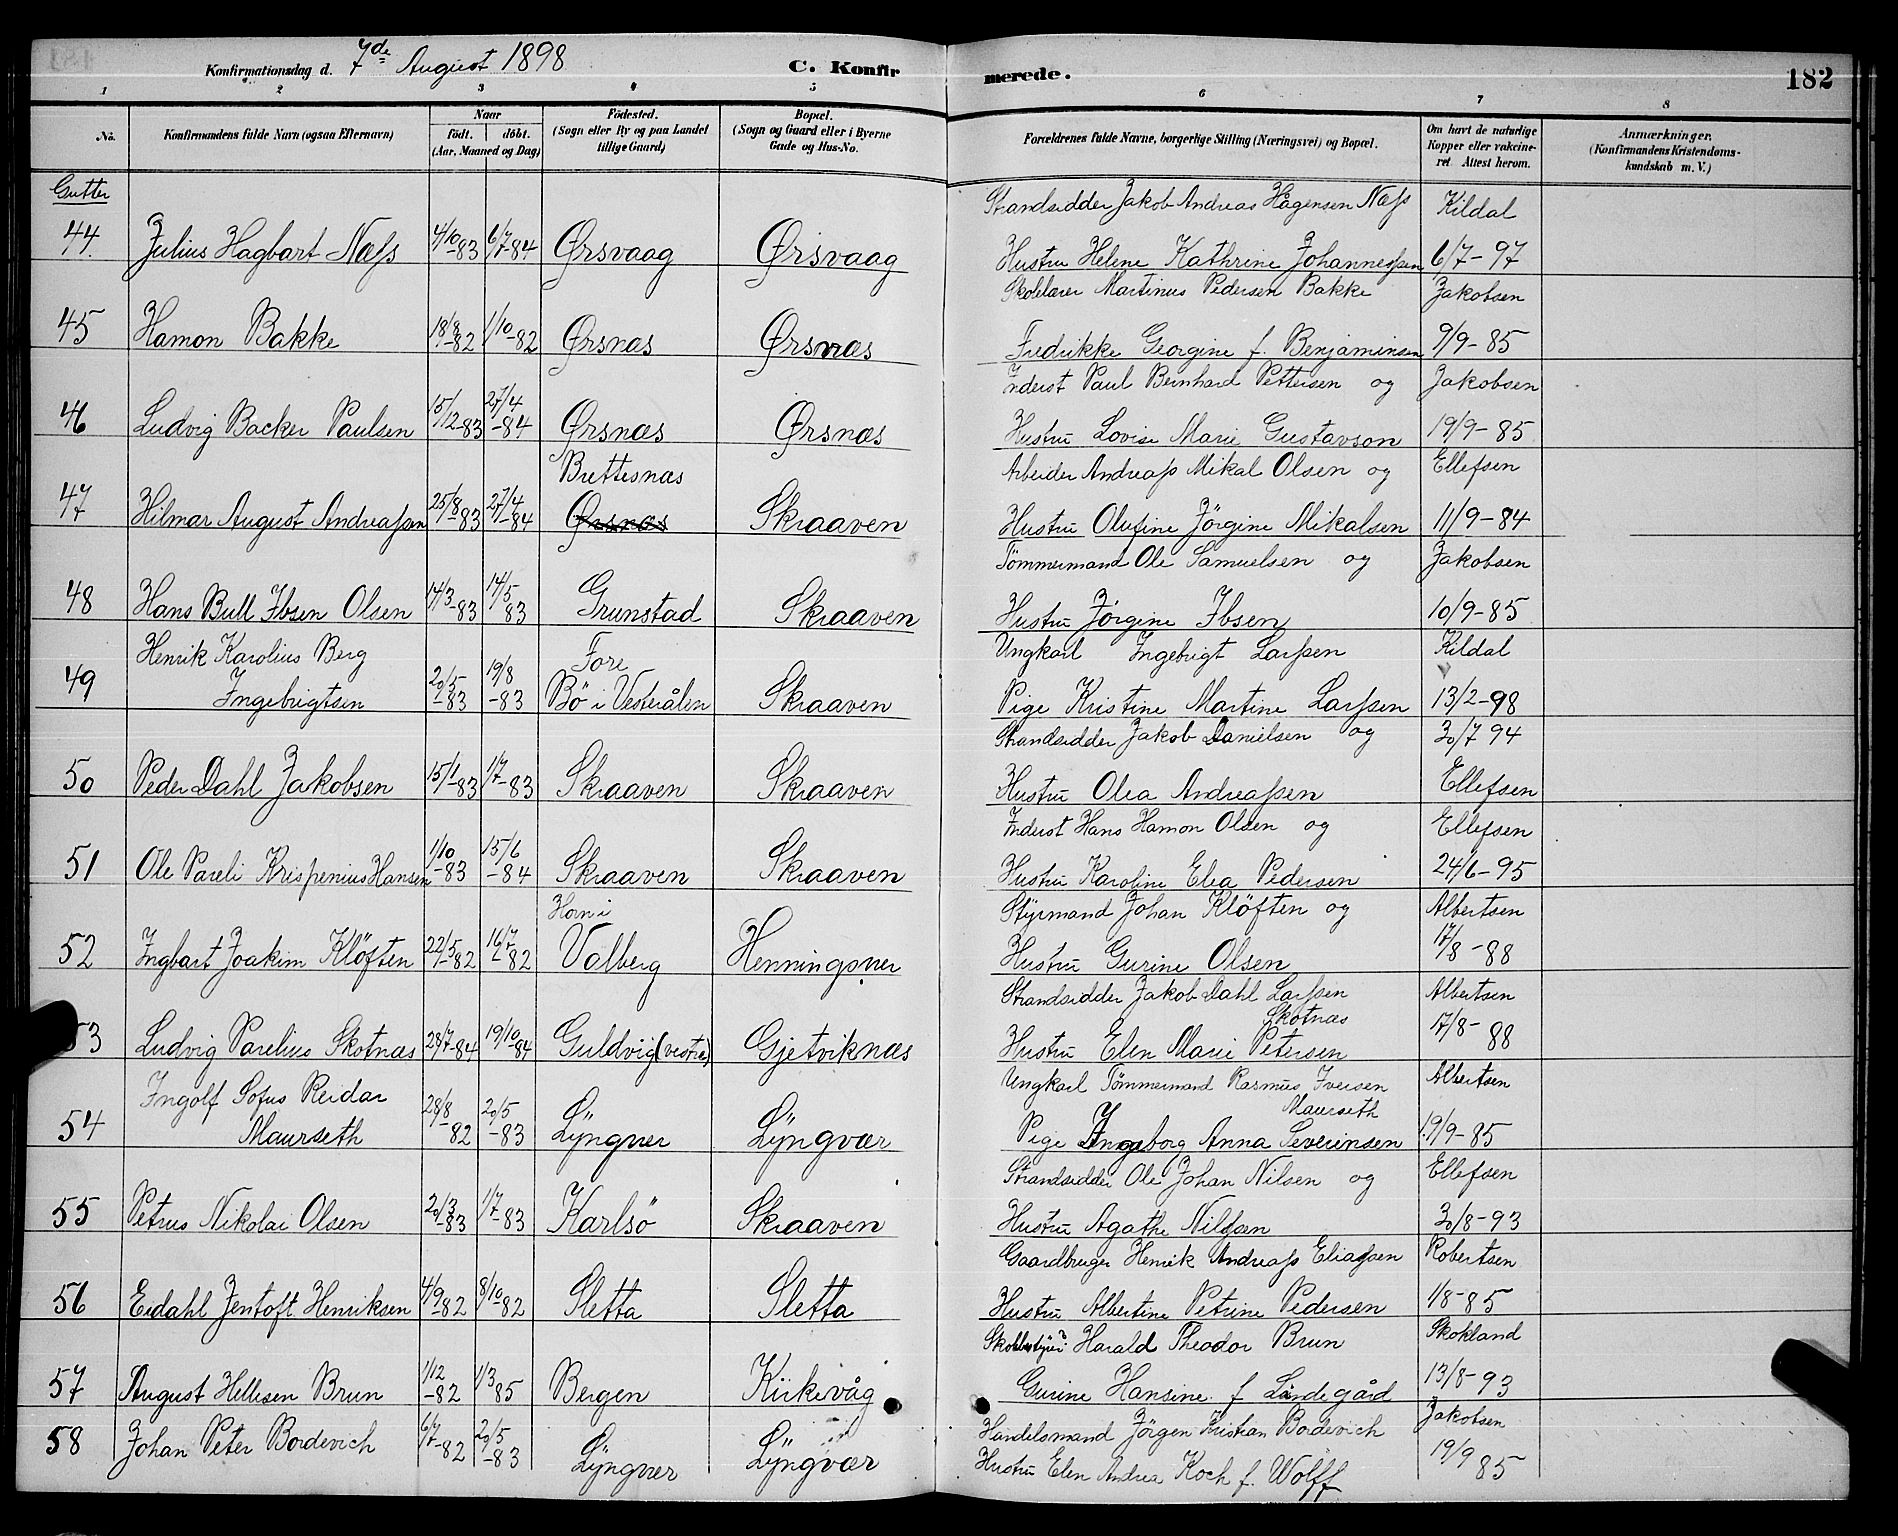 Konfirmationsdag d. 7de August 1898 C. Konfirmerede. 182
1 2 3 4 5 6 7 8
No. Konfirmandens fulde Navn (ogsaa Efternavn) Naar født. døbt. (Aar, Maaned og Dag) Fødested. (Sogn eller By og paa Landet tillige Gaard) Bopæl. (Sogn og Gaard eller i Byerne Gade og Hus-No. Forældrenes fulde Navne, borgerlige Stilling (Næringsvei) og Bopæl. Om havt de naturlige Kopper eller vakcineret. Attest herom. Anmærkninger. (Konfirmandens Kristendomskundskab m. V.)
Gutter
Strandsidder Jakob Andreas Hagensen Næss Kildal
44. Julius Hagbart Næss 4/10-83 6/7-84 Ørsvaag Ørsvaag Hustru Helene Kathrine Johannessen 6/7-97
Skolelærer Martinus Pedersen Bakke Jakobsen
45 Hamon Bakke 18/8-82 1/10-82 Ørsnæs Ørsnæs Fredrikke Georgine f. Benjaminsen 9/9-85
Inderst Paul Bernhard Pettersen og Jakobsen
46 Ludvig Backer Paulsen 15/12-83 27/4-84 Ørsnæs Ørsnæs Hustru Lovise Marie Gustavson 19/9-85
Brettesnæs Arbeider Andreass Mikal Olsen og Ellefsen
47 Hilmar August Andreassen 25/8-83 27/4-84 Ørsnæs Skraaven Hustru Olufine Jörgine Mikalsen 11/9-84
Tömmermand Ole Samuelsen og Jakobsen
48 Hans Bull Ibsen Olsen 14/3-83 14/5-83 Grunstad Skraaven Hustru Jörgine Ibsen 10/9-85
Henrik Karolius Berg Fore Ungkarl Ingebrigt Larssen Kildal
49 Ingebrigtsen 20/5-83 19/8-83 Bö i Vesterålen Skraaven Pige Kristine Martine Larssen 13/2-98
Strandsidder Jakob Danielsen og 30/7 94
50 Peder Dahl Jakobsen 15/1-83 1/7-83 Skraaven Skraaven Hustru Olea Andreassen Ellefsen
Inderst Hans Hamon Olsen og Ellefsen
51 Ole Pareli Krispenius Hansen 1/10-83 15/6-84 Skraaven Skraaven Hustru Karoline Elea Pedersen 24/6-95
Horn i Styrmand Johan Klöften og Albertsen
52 Ingbart Joakim Klöften 22/5-82 16/7-82 Valberg Henningsver Hustru Gurine Olsen 17/8-88
Strandsidder Jakob Dahl Larssen Albertsen
Skotnæs
53 Ludvig Parelius Skotnæs 28/7-84 19/10-84 Guldvig (vestre) Gjetviknæs Hustru Elen Marie Petersen 17/8-88
Ingolf Sofus Reidar Ungkarl Tömmermand Rasmus Iversen Albertsen
Maurseth
54 Maurseth 28/8-82 20/5-83 Lyngver Lyngvær Pige Ingeborg Anna Severinsen 19/9-85
Strandsidder Ole Johan Nilsen og Ellefsen
55 Petrus Nikolai Olsen 20/3-83 1/7-83 Karlsö Skraaven Hustru Agathe Nilssen 30/8-93
Gaardbruger Henrik Andreass Eliassen Robertsen
56 Eidahl Jentoft Henriksen 4/9-82 8/10-82 Sletta Sletta Hustru Albertine Petrine Pedersen 1/8-85
Skolebestyrer Harald Theodor Brun Skokland
57 August Hellesen Brun 1/12-82 1/3 85 Bergen Kirkevåg Gurine Hansine f. Lindegård 13/8-93
Handelsmand Jörgen Kristian Bordevich Jakobsen
58 Johan Peter Bordevich 6/7-82 20/5-83 Lyngver Lyngvær Hustru Elen Andrea Koch f. Wolff 19/9 85